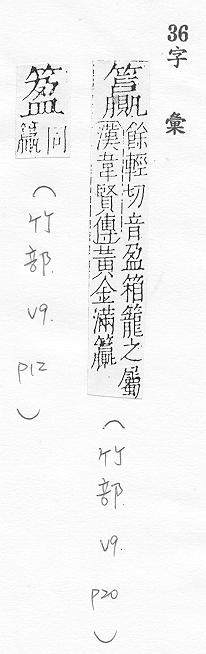 36字彙
籯
餘輕切音盈箱籠之屬
漢韋賢傳黃金滿籯
(竹部 v9. p20)
同
籯
(竹部 v9. p12)